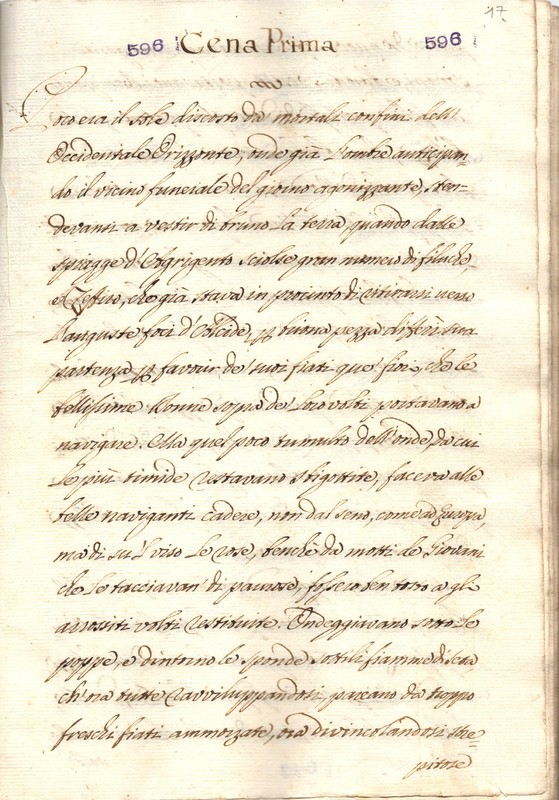 17
596 Cena Prima 596
Poco era il Sole discosto da' mortali confini dell'
Occidentale Orizzonte, onde già l'ombre anticipan-
do il vicino funerale del giorno agonizzante, sten-
devansi a vestir di bruno la terra, quando dalle
spiagge d'Agrigento sciolse gran numero di filuche,
e Zeffiro, che già stava in procinto di ritirarsi verso
l'anguste foci d'Colcide, p buona pezza differì sua
partenza p favorir de' suoi fiati que' fiori, che le
bellissime Donne sopra de' loro volti portavano a
navigare. Ma quel poco tumulto dell'onde, da cui
le più timide restavano sbigottite, faceva alle
belle naviganti cadere, non dal seno, come ad Europa,
ma di su 'l viso le rose, benchè da motti de' Giovani
che le tacciavan' di paurose, fossero ben tosto a gli
arrossiti volti restituite. Ondeggiavano sotto le
poppe, e d'intorno le sponde sottili fiamme di seta,
ch'ora tutte ravviluppandosi, pareano da troppo
freschi fiati ammorzate, ora divincolandosi stre=
pitose